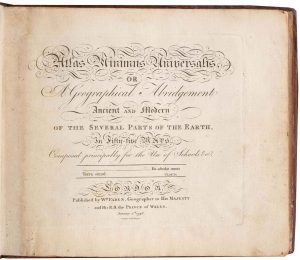 Atlas Minimus Universalis,
OR
A Geographical Abridgement
Ancient AND Modern
OF THE SEVERAL PARTS OF THE EARTH,
In Fifty-five MAPS,
Composed principally for the Use of Schools &c.
LONDON:
Published by Wm. FADEN, Geographer to His MAJESTY
and His R.H. the PRINCE OF WALES,